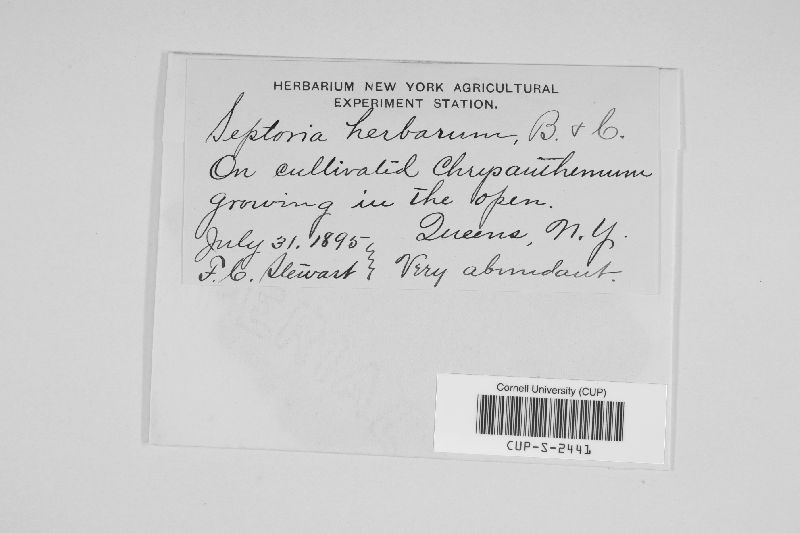 HERBARIUM NEW YORK AGRICULTURAL
EXPERIMENT STATION.
Septoria herbarum, B. & C.
On cultivated Chrysanthemum
growing in the open.
July 31. 1895 } Queens, N.Y.
F.C. Stewart } Very abundant.
Cornell University (CUP)
CUP-S-2441